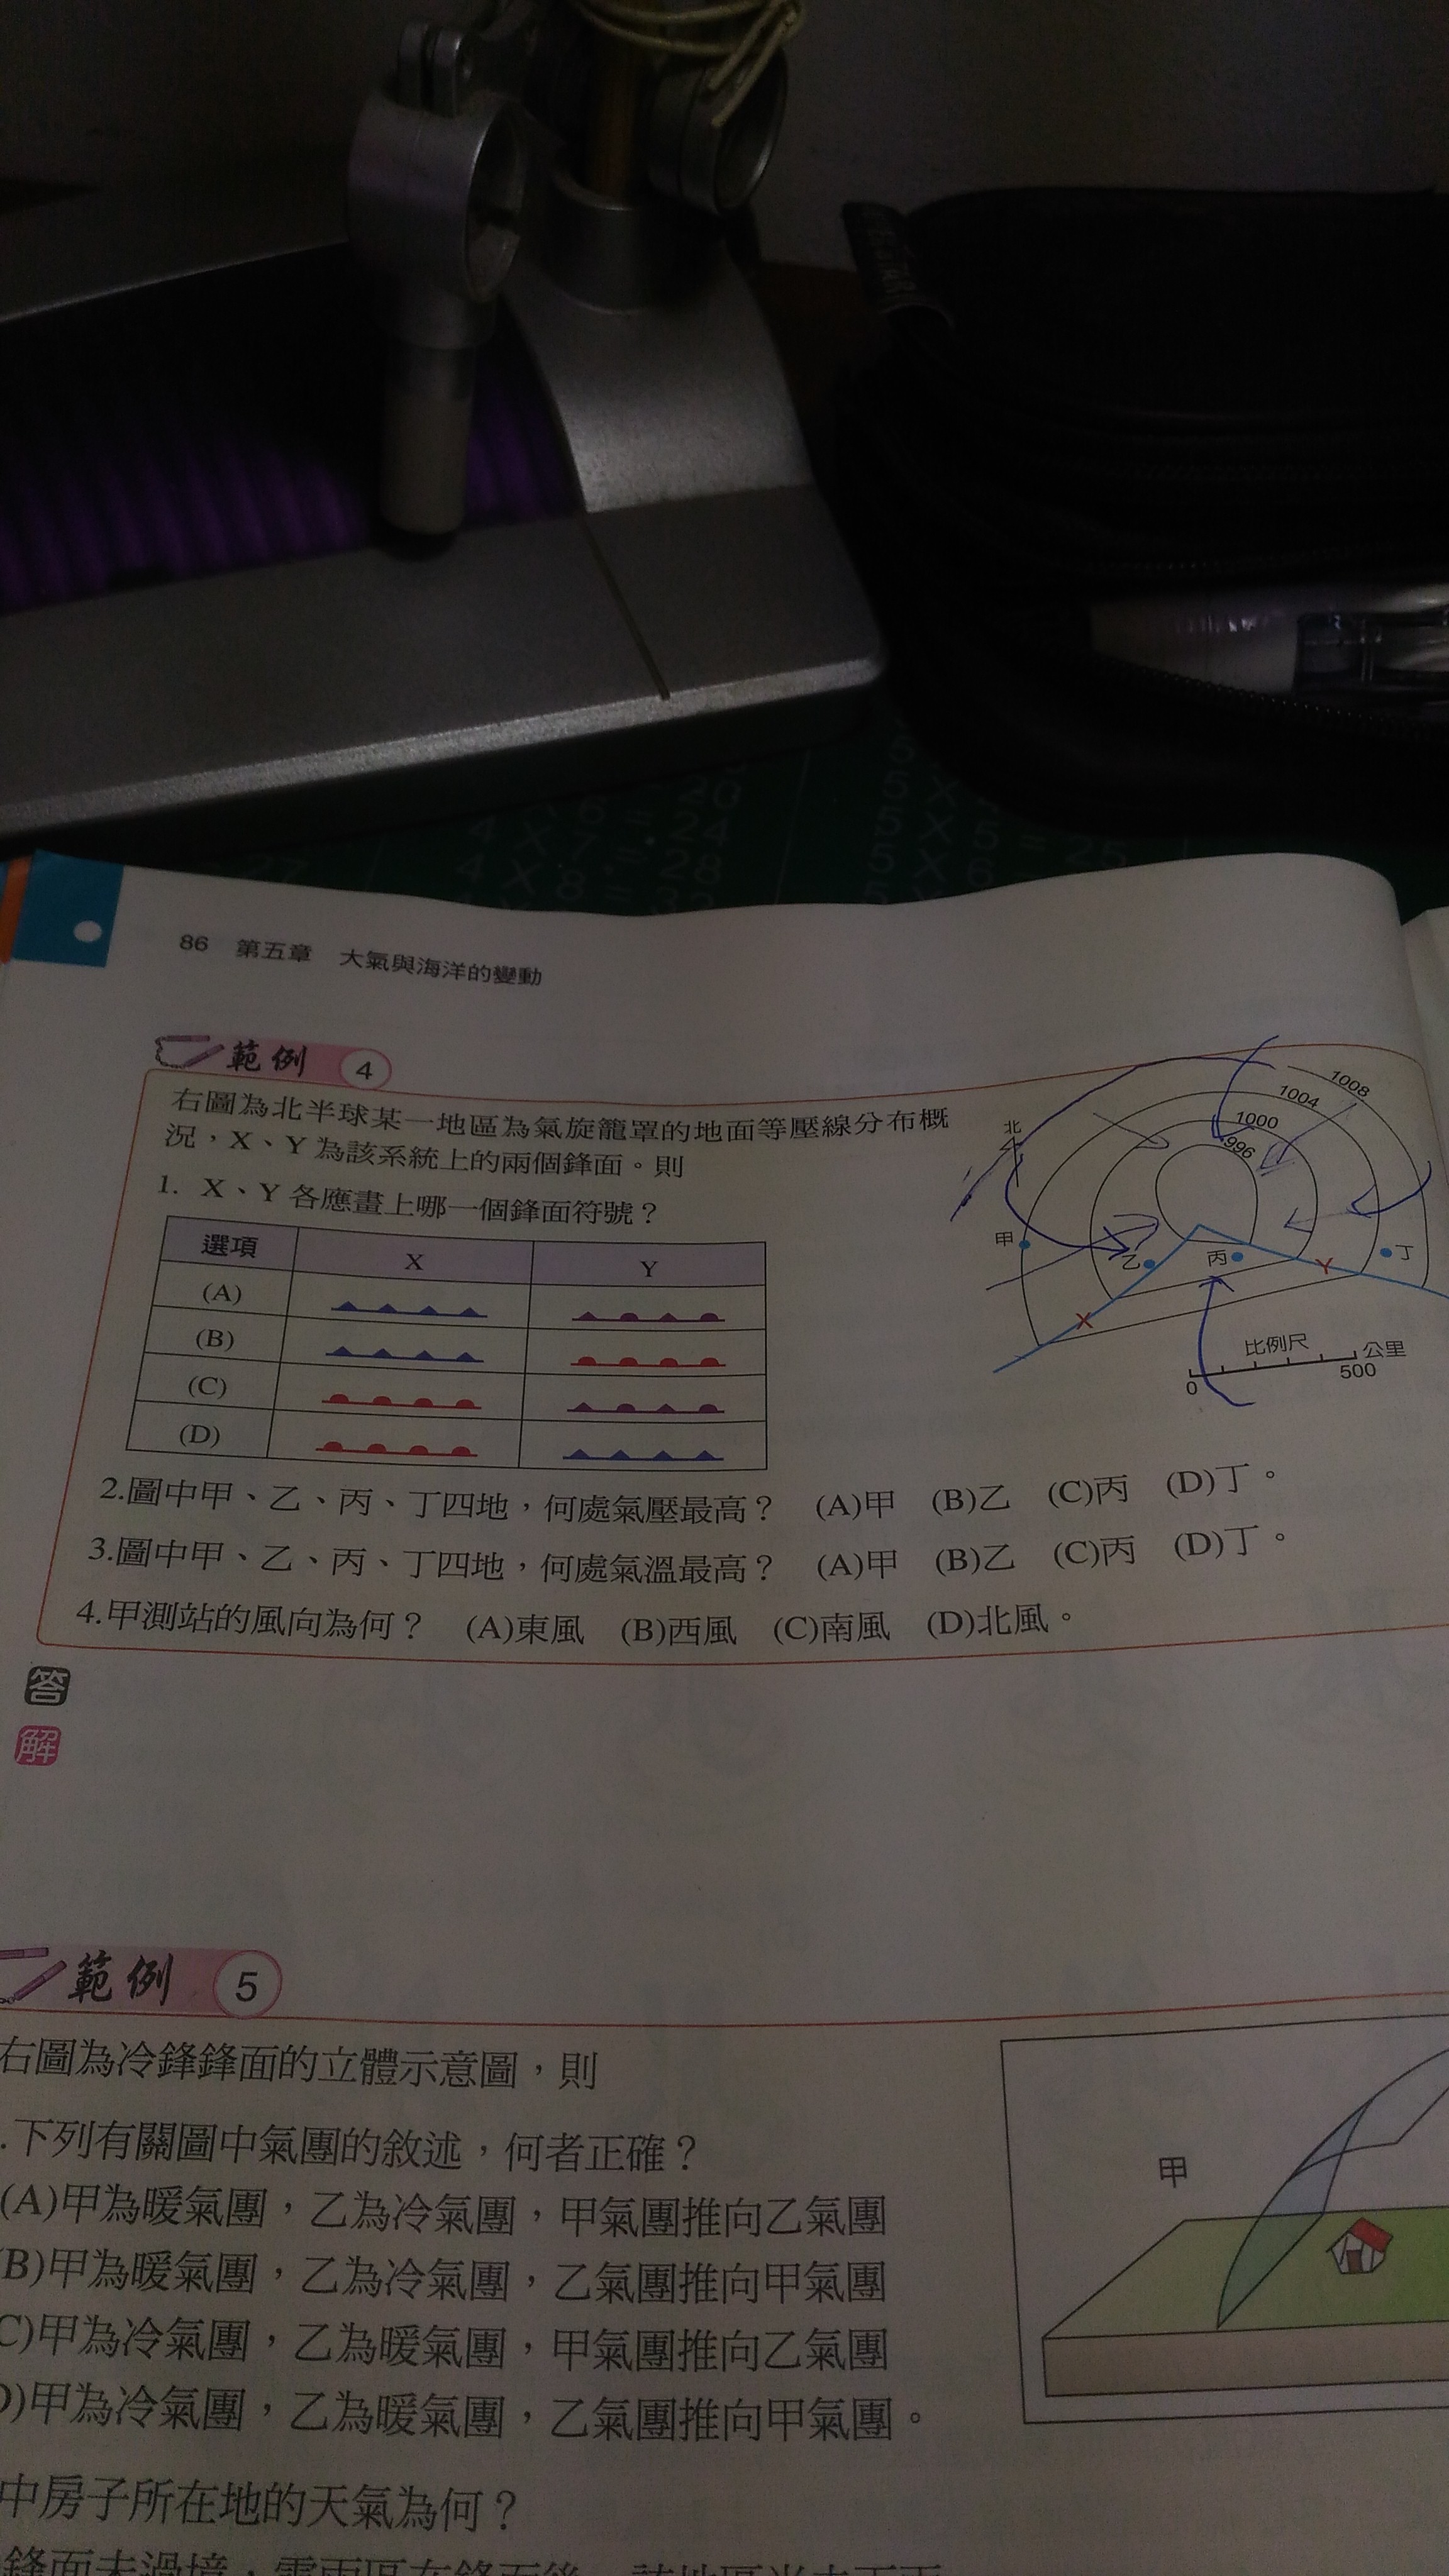 86 第五章 大氣與海洋的變動
範例 4
右圖為北半球某一地區為氣旋籠罩的地面等壓線分布概
況，X、Y 為該系統上的兩個鋒面。則
1. X、Y 各應畫上哪一個鋒面符號？
選項 X Y
(A)
(B)
(C)
(D)
北
1008
1004
1000
996
甲
乙
丙
丁
X
Y
比例尺
0 500 公里
2.圖中甲、乙、丙、丁四地，何處氣壓最高？ (A)甲 (B)乙 (C)丙 (D)丁。
3.圖中甲、乙、丙、丁四地，何處氣溫最高？ (A)甲 (B)乙 (C)丙 (D)丁。
4.甲測站的風向為何？ (A)東風 (B)西風 (C)南風 (D)北風。
答
解
範例 5
右圖為冷鋒鋒面的立體示意圖，則
.下列有關圖中氣團的敘述，何者正確？
(A)甲為暖氣團，乙為冷氣團，甲氣團推向乙氣團
B)甲為暖氣團，乙為冷氣團，乙氣團推向甲氣團
C)甲為冷氣團，乙為暖氣團，甲氣團推向乙氣團
D)甲為冷氣團，乙為暖氣團，乙氣團推向甲氣團。
甲
中房子所在地的天氣為何？